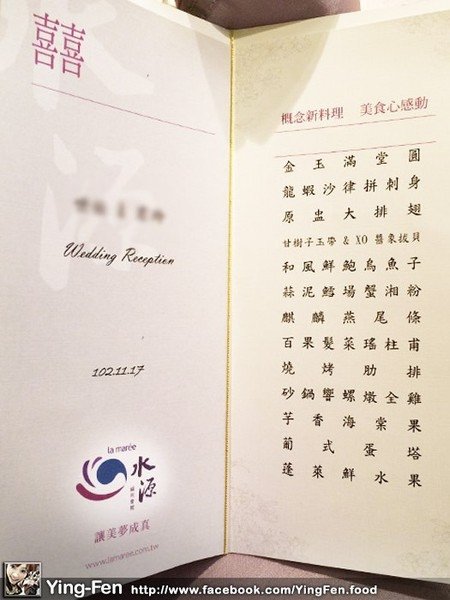 囍
Wedding Reception
102.11.17
la marée
水源
讓美夢成真
www.lamaree.com.tw
概念新料理 美食心感動
金玉滿堂圓
龍蝦沙律拼刺身
原盅大排翅
甘樹子玉帶 & XO 醬象拔貝
和風鮮鮑烏魚子
蒜泥鱈場蟹湘粉
麒麟燕尾條
百果髮菜瑤柱甫
燒烤肋排
砂鍋響螺燉全雞
芋香海棠果
葡式蛋塔
蓬萊鮮水果
Ying-Fen http://www.facebook.com/YingFen.food